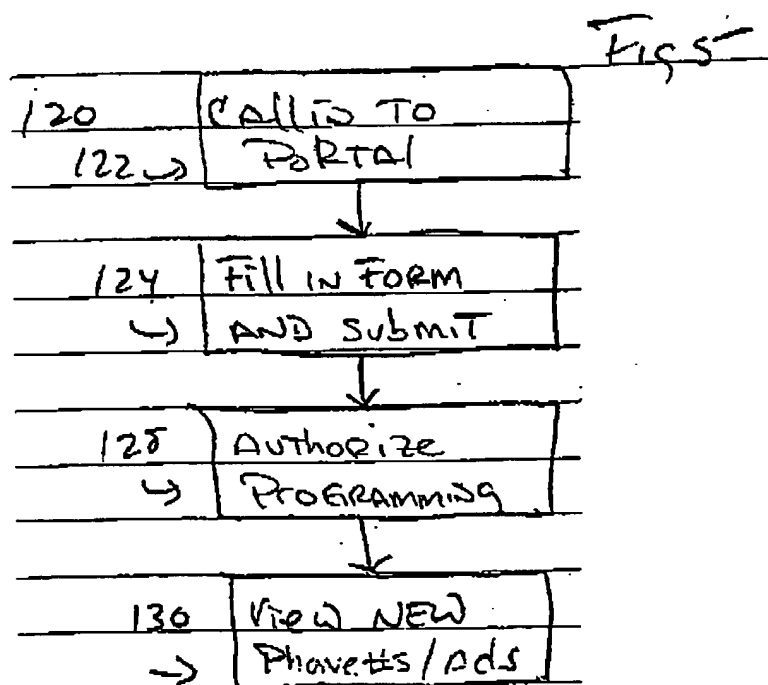 Fig 5
120 Call in to
122 Portal
124 Fill in Form
and submit
128 Authorize
Programming
130 View New
/ Ads